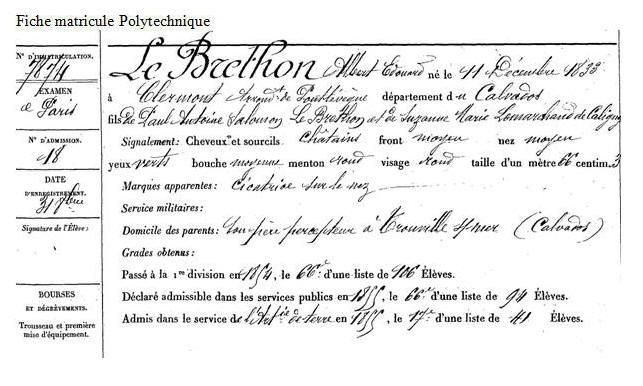 Fiche matricule Polytechnique
N° D'IMMATRICULATION.
7874
EXAMEN
de Paris
N° D'ADMISSION.
48
DATE
D'ENREGISTREMENT.
31 8bre
Signature de l'Élève:
BOURSES
ET DÉGRÈVEMENTS.
Trousseau et première
mise d'équipement.
Le Brethon Albert Edouard né le 11 Décembre 1833
à Clermont Arrondt de Pontlévèque département du Calvados
fils de Paul Antoine Salomon Le Brethon et de Suzanne Marie Lemarchand de Caligny
Signalement: Cheveux et sourcils châtains front moyen nez moyen
yeux verts bouche moyenne menton rond visage rond taille d'un mètre 66 centim. 3
Marques apparentes: cicatrice sur le nez
Service militaires:
Domicile des parents: son père percepteur à Trouville s/mer (Calvados)
Grades obtenus:
Passé à la 1re division en 1854, le 66e d'une liste de 106 Élèves.
Déclaré admissible dans les services publics en 1855, le 66e d'une liste de 94 Élèves.
Admis dans le service de l'Artie de terre en 1855, le 17e d'une liste de 41 Élèves.